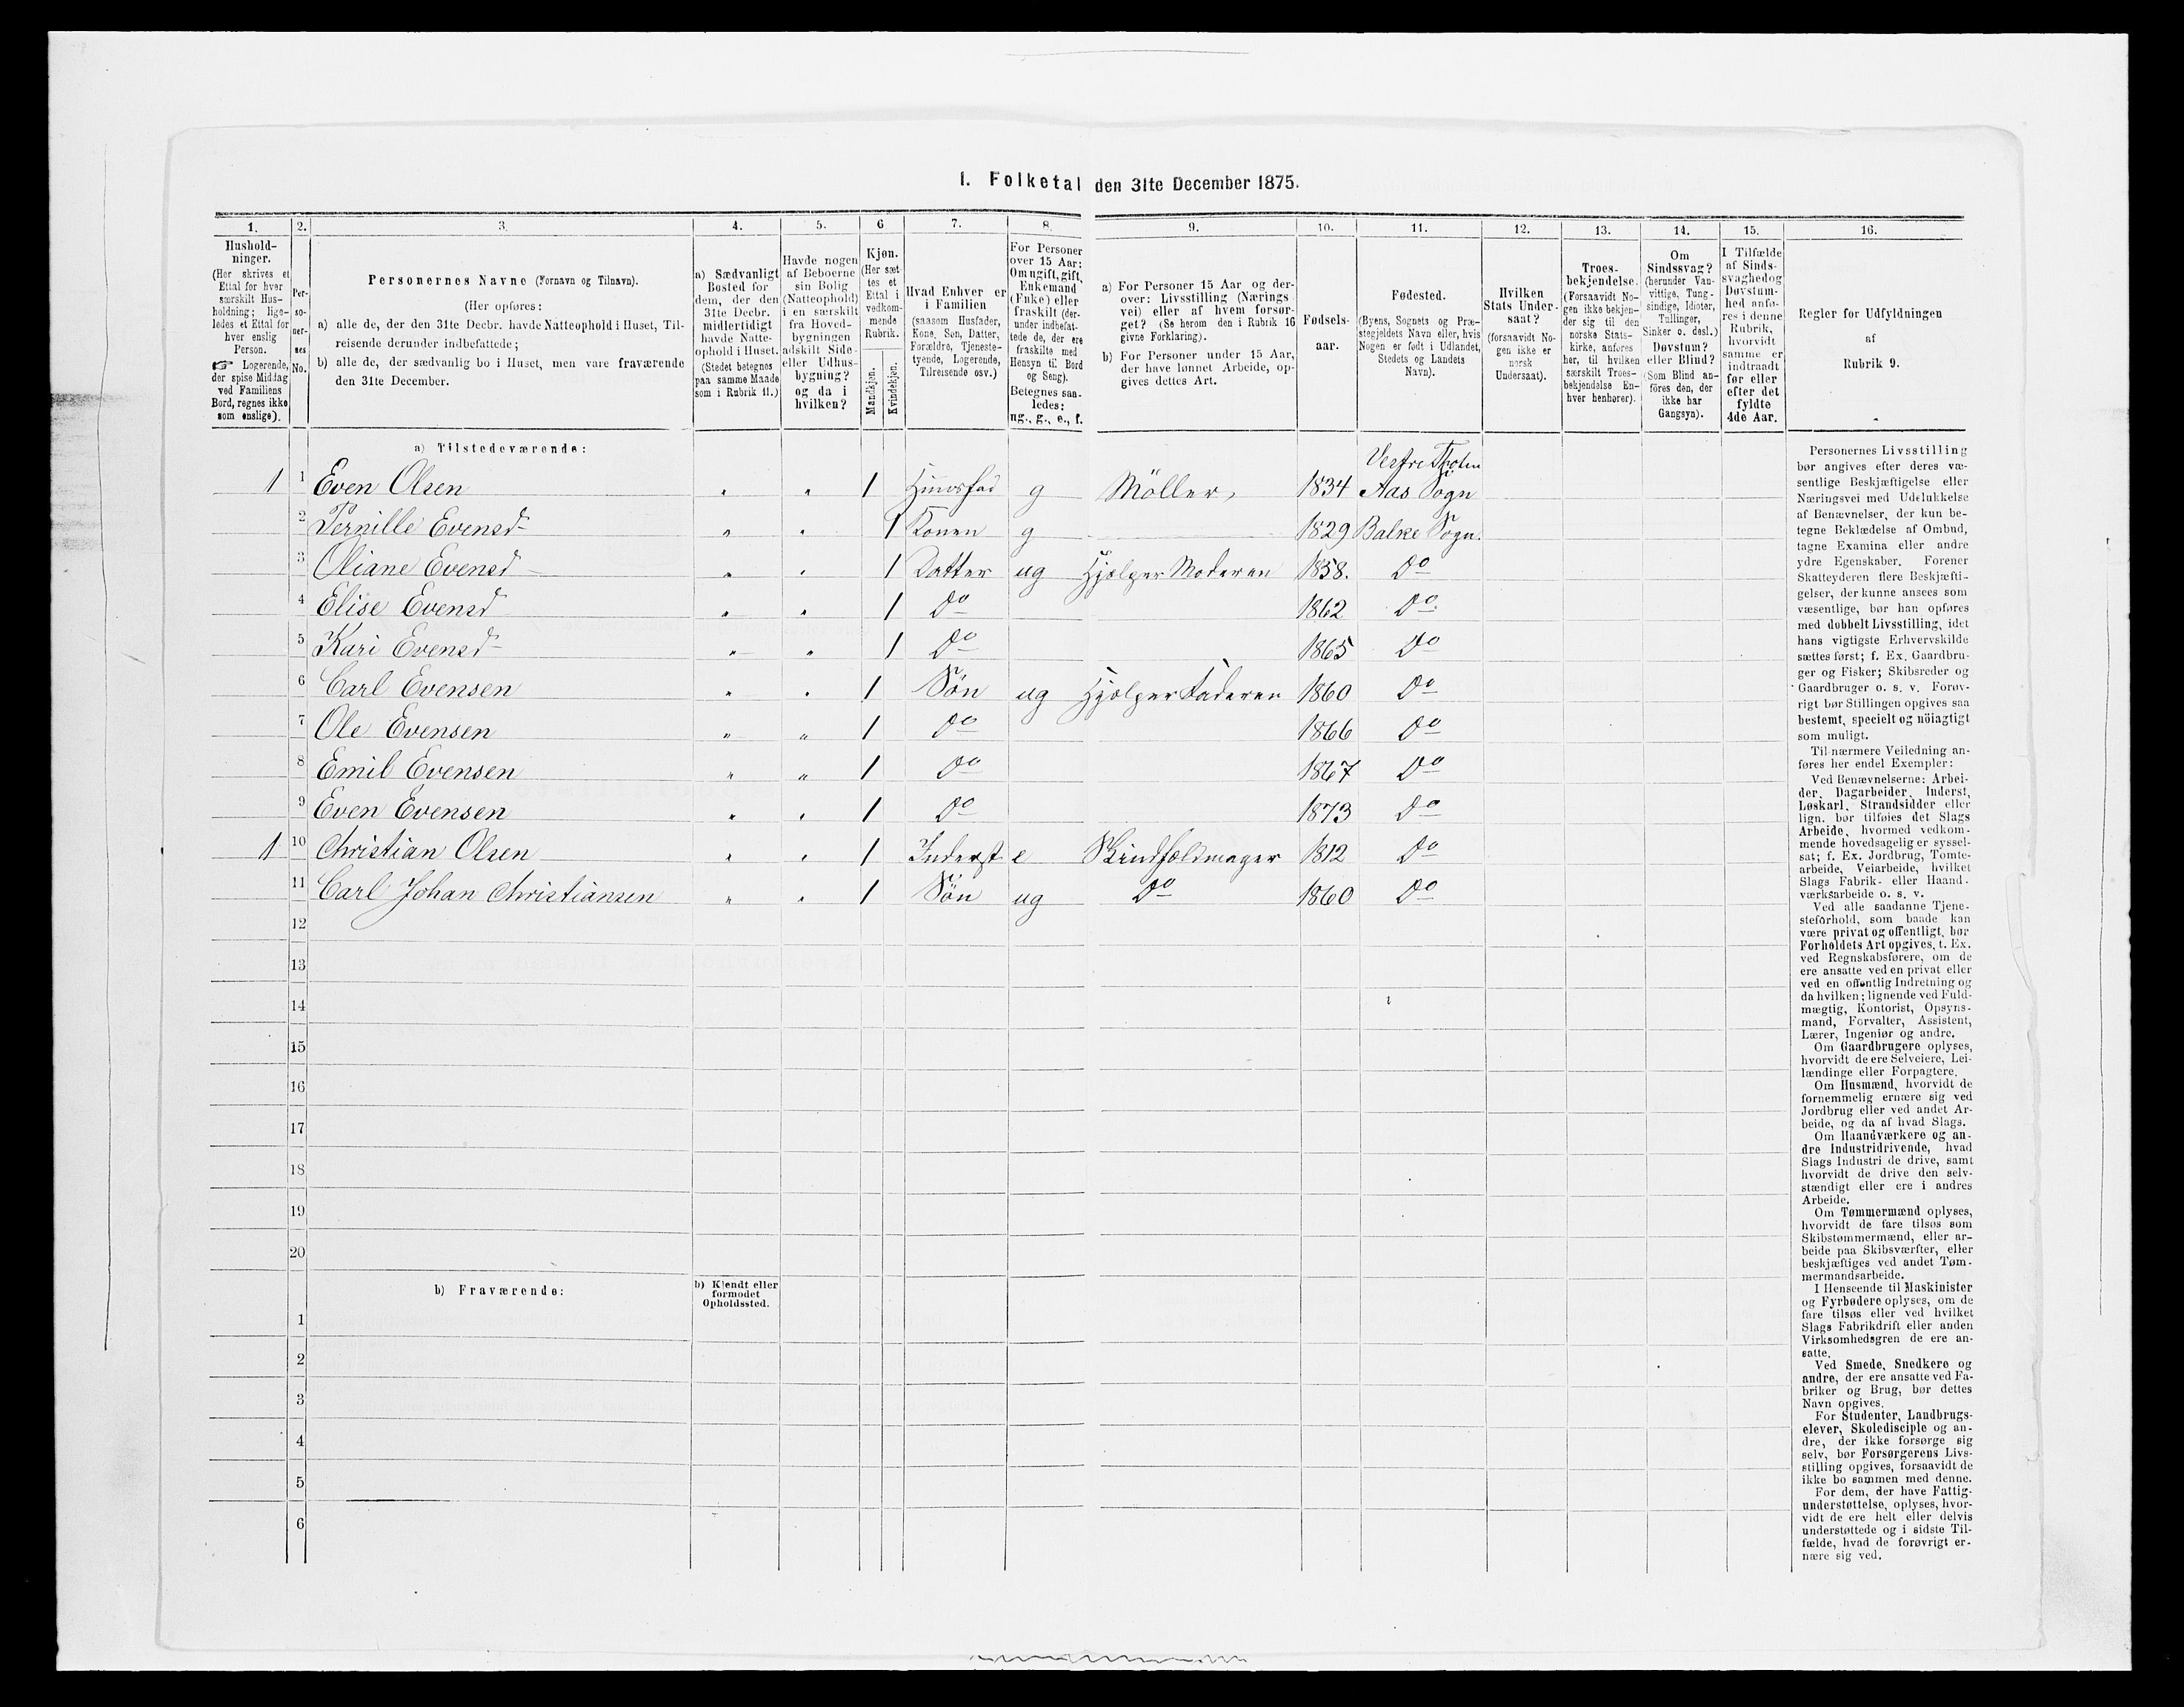 1. Folketal den 31te December 1875.
1. 2. 3. 4. 5. 6 7. 8. 9. 10. 11. 12. 13. 14. 15. 16.
Hushold-
ninger.
(Her skrives et
Ettal for hver
særskilt Hus-
holdning; lige-
ledes et Ettal for
hver enslig
Person.
☞ Logerende,
der spise Middag
ved Familiens
Bord, regnes ikke
som enslige).
Per-
so-
ner-
nes
No.
Personernes Navne (Fornavn og Tilnavn).
(Her opføres:
a) alle de, der den 31te Decbr. havde Natteophold i Huset, Til-
reisende derunder indbefattede;
b) alle de, der sædvanlig bo i Huset, men vare fraværende
den 31te December.
a) Sædvanligt
Bosted for
dem, der den
31te Decbr.
midlertidigt
havde Natte-
ophold i Huset.
(Stedet betegnes
paa samme Maade
som i Rubrik 11.)
Havde nogen
af Beboerne
sin Bolig
(Natteophold)
i en særskilt
fra Hoved-
bygningen
adskilt Side-
eller Udhus-
bygning?
og da i
hvilken?
Kjøn.
(Her sæt-
tes et
Ettal i
vedkom-
mende
Rubrik.
Mandkjøn.
Kvindekjøn.
Hvad Enhver er
i Familien
(saasom Husfader,
Kone, Søn, Datter,
Forældre, Tjeneste-
tyende, Logerende,
Tilreisende osv.)
For Personer
over 15 Aar:
Om ugift, gift,
Enkemand
(Enke) eller
fraskilt (der-
under indbefat-
tede de, der ere
fraskilte med
Hensyn til Bord
og Seng).
Betegnes saa-
ledes:
ug., g., e., f.
a) For Personer 15 Aar og der-
over: Livsstilling (Nærings-
vei) eller af hvem forsør-
get? (Se herom den i Rubrik 16
givne Forklaring).
b) For Personer under 15 Aar,
der have lønnet Arbeide, op-
gives dettes Art.
Fødsels-
aar.
Fødested.
(Byens, Sognets og Præ-
stegjeldets Navn eller, hvis
Nogen er født i Udlandet,
Stedets og Landets
Navn).
Hvilken
Stats Under-
saat?
(forsaavidt No-
gen ikke er
norsk
Undersaat).
Troes-
bekjendelse.
(Forsaavidt No-
gen ikke bekjen-
der sig til den
norske Stats-
kirke, anføres
her, til hvilken
særskilt Troes-
bekjendelse En-
hver henhører).
Om
Sindssvag?
(herunder Van-
vittige, Tung-
sindige, Idioter,
Tullinger,
Sinker o. desl.)
Døvstum?
eller Blind?
(Som Blind an-
föres den, der
ikke har
Gangsyn).
I Tilfælde
af Sinds-
svaghed og
Døvstum-
hed anfø-
res i denne
Rubrik,
hvorvidt
samme er
indtraadt
før eller
efter det
fyldte
4de Aar.
Regler for Udfyldningen
af
Rubrik 9.
a) Tilstedeværende:
Vestre Thoten
1 1 Even Olsen " " 1 Huusfad g Möller, 1834 Aas Sogn
2 Pernille Evensd " " 1 Konen g 1829 Balke Sogn.
3 Oliane Evensd " " 1 Datter ug Hjælper Moderen 1858. Do
4 Elise Evensd " " 1 Do 1862 Do
5 Kari Evensd " " 1 Do 1865 Do
6 Carl Evensen " " 1 Sön ug Hjælper Faderen 1860 Do
7 Ole Evensen " " 1 Do 1866 Do
8 Emil Evensen " " 1 Do 1867 Do
9 Even Evensen " " 1 Do 1873 Do
1 10 Christian Olsen " " 1 Inderst e Skindfældmager 1812 Do
11 Carl Johan Christiansen " " 1 Sön ug Do 1860 Do
12
13
14
15
16
17
18
19
20
b) Fraværende:
b) Kjendt eller
formodet
Opholdssted.
1
2
3
4
5
6
Personernes Livsstilling
bør angives efter deres væ-
sentlige Beskjæftigelse eller
Næringsvei med Udelukkelse
af Benævnelser, der kun be-
tegne Beklædelse af Ombud,
tagne Examina eller andre
ydre Egenskaber. Forener
Skatteyderen flere Beskjæfti-
gelser, der kunne ansees som
væsentlige, bør han opføres
med dobbelt Livsstilling, idet
hans vigtigste Erhvervskilde
sættes først; f. Ex. Gaardbru-
ger og Fisker; Skibsreder og
Gaardbruger o. s. v. Forøv-
rigt bør Stillingen opgives saa
bestemt, specielt og nöiagtigt
som muligt.
Til nærmere Veiledning an-
føres her endel Exempler:
Ved Benævnelserne: Arbei-
der, Dagarbeider, Inderst,
Løskarl, Strandsidder eller
lign. bør tilføies det Slags
Arbeide, hvormed vedkom-
mende hovedsagelig er syssel-
sat; f. Ex. Jordbrug, Tomte-
arbeide, Veiarbeide, hvilket
Slags Fabrik- eller Haand-
værksarbeide o. s. v.
Ved alle saadanne Tjene-
steforhold, som baade kan
være privat og offentligt, bør
Forholdets Art opgives, t. Ex.
ved Regnskabsførere, om de
ere ansatte ved en privat eller
ved en offentlig Indretning og
da hvilken; lignende ved Fuld-
mægtig, Kontorist, Opsyns-
mand, Forvalter, Assistent,
Lærer, Ingeniør og andre.
Om Gaardbrugere oplyses,
hvorvidt de ere Selveiere, Lei-
lændinge eller Forpagtere.
Om Husmænd, hvorvidt de
fornemmelig ernære sig ved
Jordbrug eller ved andet Ar-
beide, og da af hvad Slags.
Om Haandværkere og an-
dre Industridrivende, hvad
Slags Industri de drive, samt
hvorvidt de drive den selv-
stændigt eller ere i andres
Arbeide.
Om Tømmermænd oplyses,
hvorvidt de fare tilsøs som
Skibstømmermænd, eller ar-
beide paa Skibsværfter, eller
beskjæftiges ved andet Tøm-
mermandsarbeide.
I Henseende til Maskinister
og Fyrbødere oplyses, om de
fare tilsøs eller ved hvilket
Slags Fabrikdrift eller anden
Virksomhedsgren de ere an-
satte.
Ved Smede, Snedkere og
andre, der ere ansatte ved Fa-
briker og Brug, bør dettes
Navn opgives.
For Studenter, Landbrugs-
elever, Skoledisciple og an-
dre, der ikke forsørge sig
selv, bør Forsørgerens Livs-
stilling opgives, forsaavidt de
ikke bo sammen med denne.
For dem, der have Fattig-
understøttelse, oplyses, hvor-
vidt de ere helt eller delvis
understøttede og i sidste Til-
fælde, hvad de forøvrigt er-
nære sig ved.